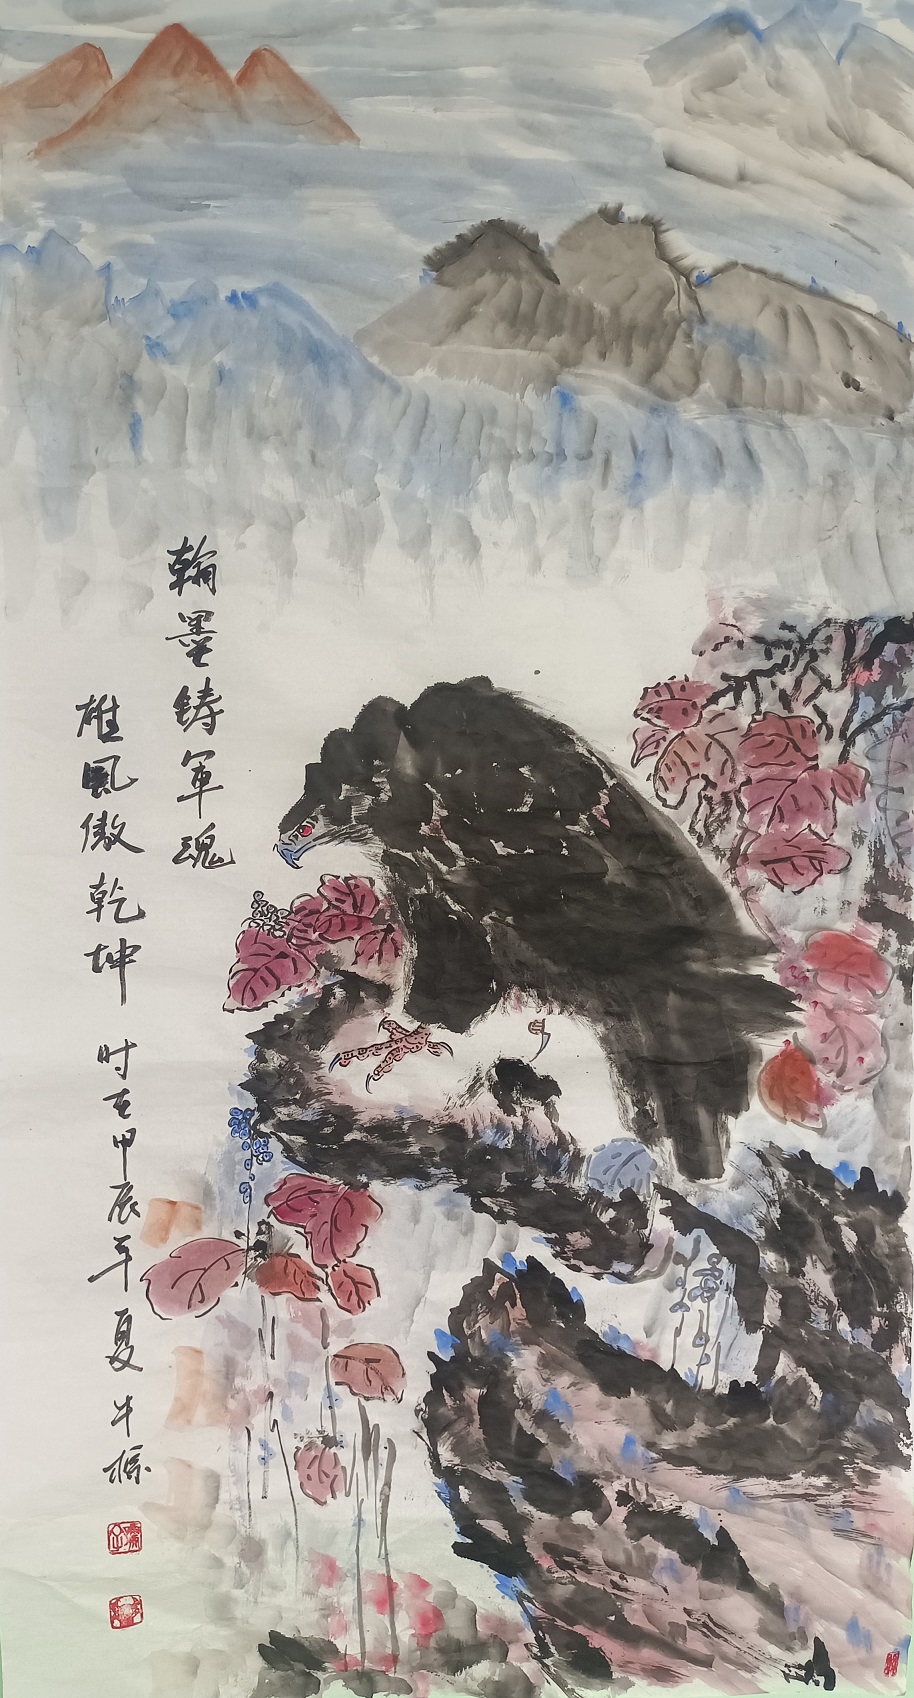 翰墨铸军魂
雄风傲乾坤 时在甲辰年夏 牛